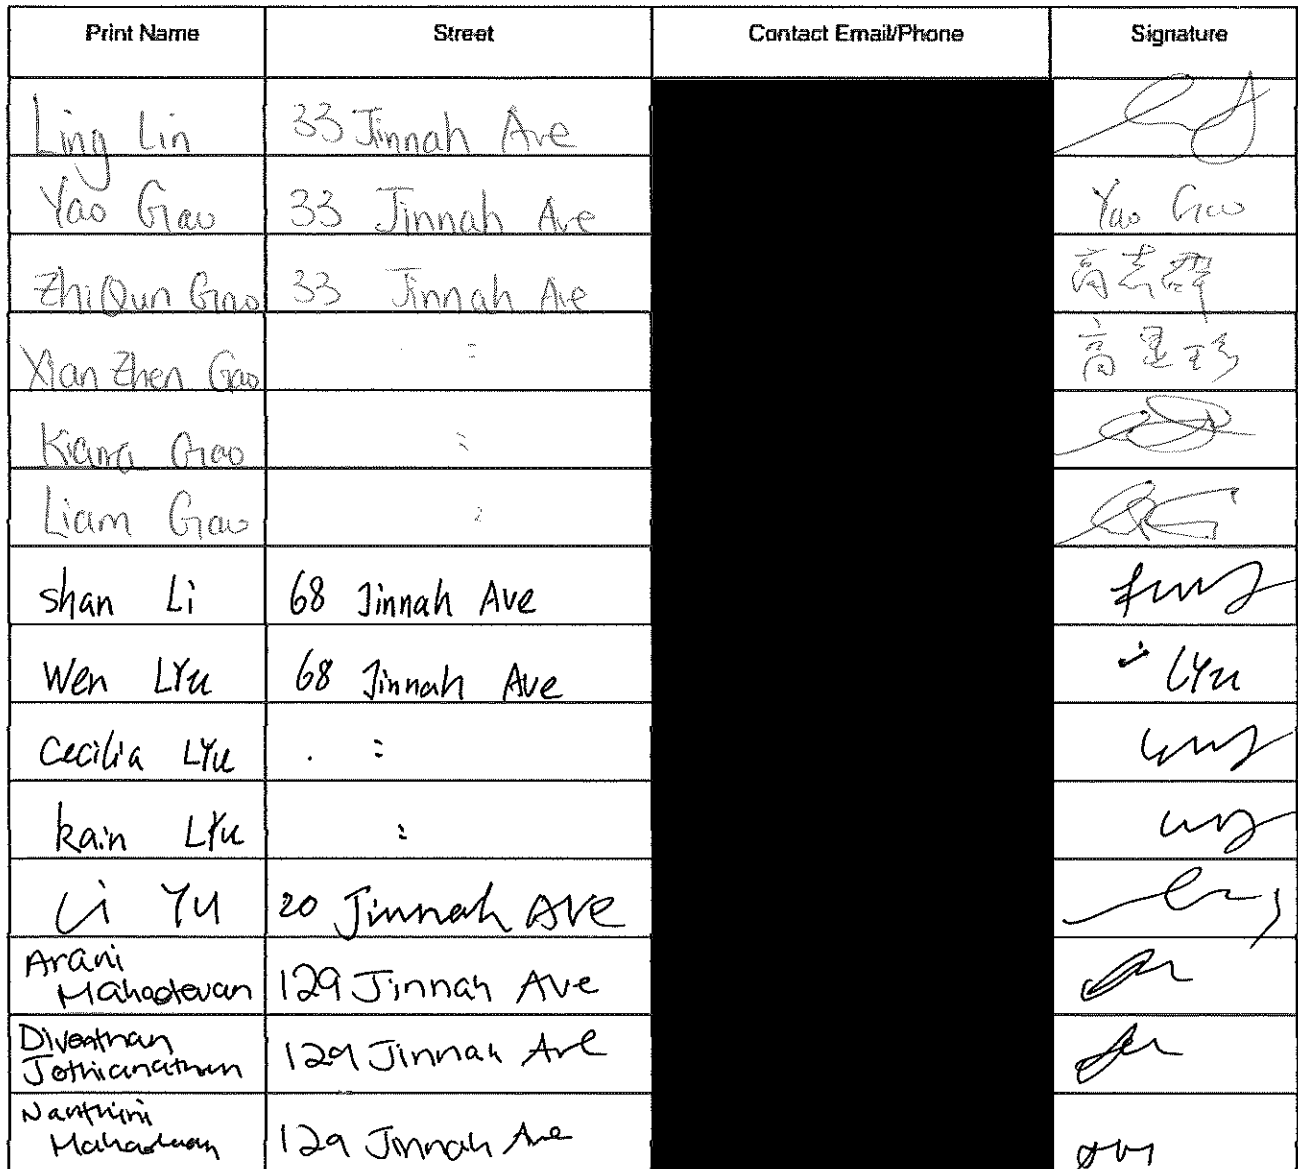 Print Name Street Contact Email/Phone Signature
Ling Lin 33 Jinnah Ave
Yao Gao 33 Jinnah Ave Yao Gao
ZhiQun Gao 33 Jinnah Ave 高志群
Xian Zhen Gao 〃 高显珍
Kiana Gao 〃
Liam Gao 〃
Shan Li 68 Jinnah Ave
Wen LYu 68 Jinnah Ave LYu
Cecilia LYu 〃
kain LYu 〃
Li Yu 20 Jinnah Ave
Arani
Mahadevan 129 Jinnah Ave
Diveathan
Jothianathan 129 Jinnah Ave
Nanthini
Mahadevan 129 Jinnah Ave